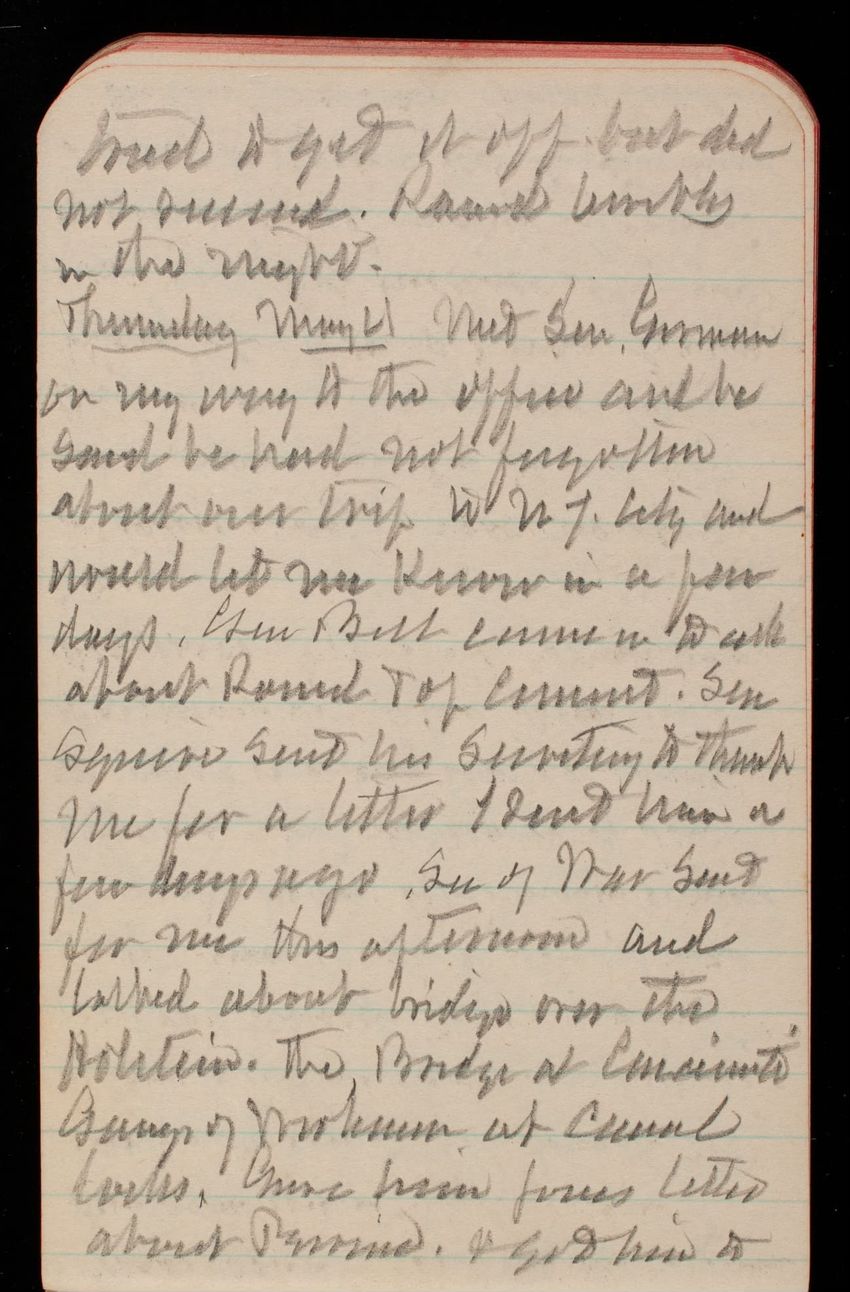 tried to get it off but did
not succeed. Rained terribly
in the night.
Thursday May 21 Met Sen. Gorman
on my way to the office and he
said he had not forgotten
about our trip to N Y. City and
would let me know in a few
days. Gen Belt came in to ask
about Round Top. Sen
Squire sent his Secretary to thank
me for a letter I sent him a
few days ago. Sec of War sent
for me this afternoon and
talked about bridge over the
Holstein. The Bridge at Cincinnati
Gangs of workmen at Canal
locks. Gave him letter
about . & got him to